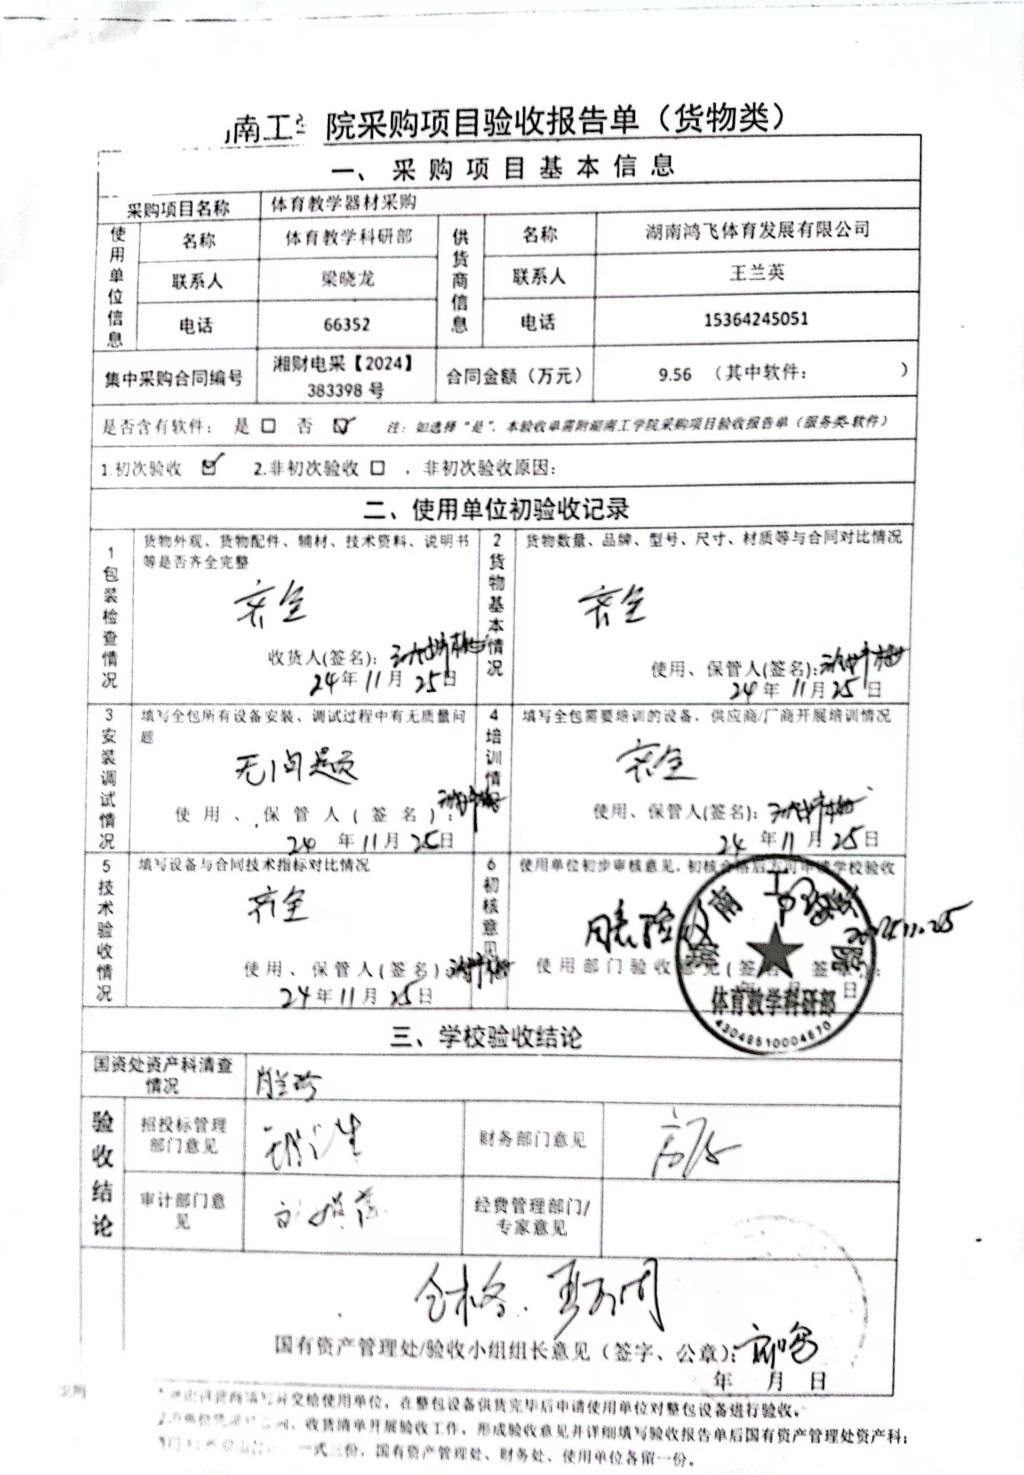 南工学院采购项目验收报告单（货物类）
一、采购项目基本信息
采购项目名称 体育教学器材采购
使用单位信息 名称 体育教学科研部 供货商信息 名称 湖南鸿飞体育发展有限公司
联系人 梁晓龙 联系人 王兰英
电话 66352 电话 15364245051
集中采购合同编号 湘财电采【2024】383398号 合同金额（万元） 9.56 （其中软件： ）
是否含有软件： 是 □ 否 ☑ 注：如选择“是”，本验收单需附湖南工学院采购项目验收报告单（服务类-软件）
1.初次验收 ☑ 2.非初次验收 □ ，非初次验收原因：
二、使用单位初验收记录
1 包装检查情况
货物外观、货物配件、辅材、技术资料、说明书
等是否齐全完整
齐全
收货人(签名)：
24年11月25日
2 货物基本情况
货物数量、品牌、型号、尺寸、材质等与合同对比情况
齐全
使用、保管人(签名)：
24年11月25日
3 安装调试情况
填写全包所有设备安装、调试过程中有无质量问
题
无问题
使用、保管人(签名)：
24年11月25日
4 培训情况
填写全包需要培训的设备、供应商/厂商开展培训情况
齐全
使用、保管人(签名)：
24年11月25日
5 技术验收情况
填写设备与合同技术指标对比情况
齐全
使用、保管人(签名)：
24年11月25日
6 初核意见
使用单位初步审核意见，初核合格后方可申请学校验收
同意验收
2024.11.25
使用部门验收意见(签名、签章)：
日
湖南工学院
体育教学科研部
43048510004670
三、学校验收结论
国资处资产科清查
情况
验收结论
招投标管理
部门意见
财务部门意见
审计部门意
见
经费管理部门/
专家意见
合格.
国有资产管理处/验收小组组长意见（签字、公章）：
年 月 日
说明
交给使用单位，在整包设备供货完毕后申请使用单位对整包设备进行验收。
收货清单开展验收工作，形成验收意见并详细填写验收报告单后国有资产管理处资产科；
一式三份，国有资产管理处、财务处、使用单位各留一份。